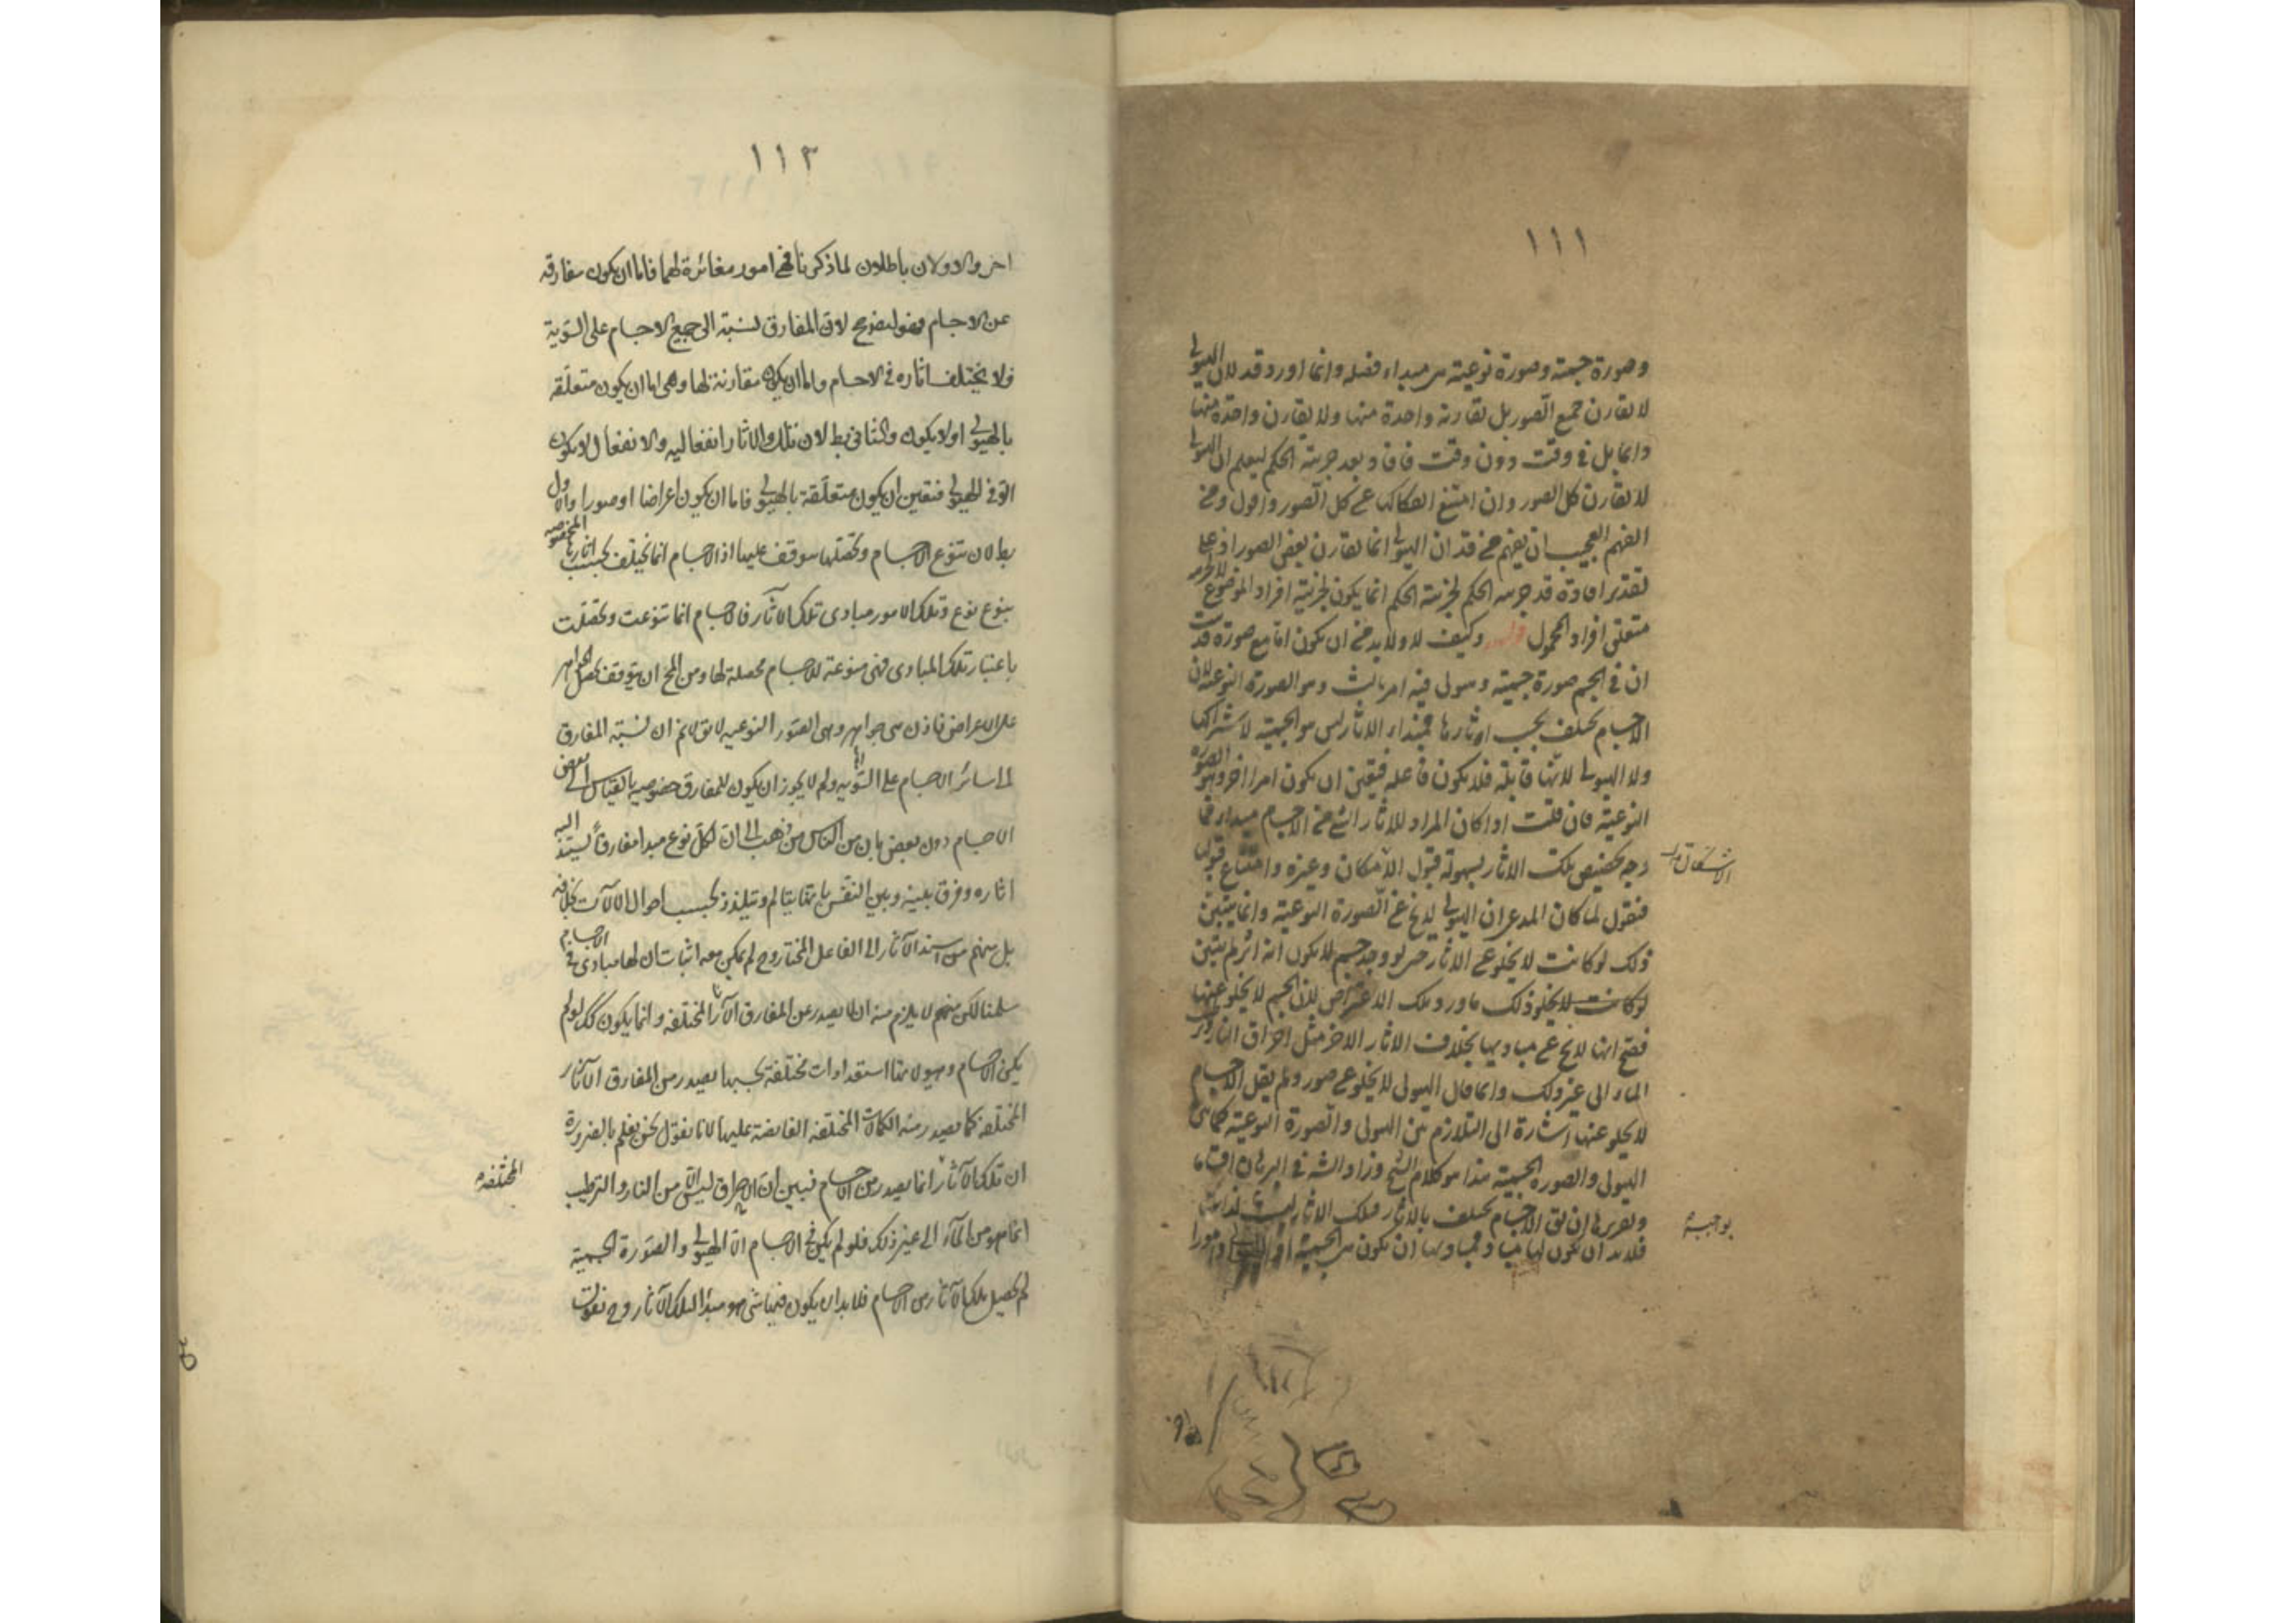 ١١١
وصورة جسمية وصورة نوعية هي مبداء فصله وانما اورد قد لان الهيولى
لا تقارن جميع الصور بل تقارن واحدة منها ولا تقارن واحدة منها
دائما بل في وقت دون وقت فافاد بقد جزئية الحكم ليعلم ان الهيولى
لا تقارن كل الصور وان امتنع انفكاكها عن كل الصور واقول ومن
الفهم العجيب ان يفهم من قد ان الهيولى انما تقارن بعض الصور اذ على
تقدير افادة قد جزئية الحكم فجزئية الحكم انما يكون لجزئية افراد الموضوع لا لجزئية
متعلق افراد المحمول قوله وكيف لا ولا بد من ان يكون اما مع صورة قد ثبت
ان في الجسم صورة جسمية وهيولى فيه امر ثالث وهو الصورة النوعية لان
الاجسام تختلف بحسب اثارها فمبداء الاثار ليس هو الجسمية لاشتراكها
ولا الهيولى لانها قابلة فلا يكون فاعلة فتعين ان يكون امرا اخر وهو الصورة
النوعية فان قلت اذا كان المراد للاثار التي من الاجسام مبدا، فما
وجه تخصيص تلك الاثار بسهولة قبول الانفكاك وغيره وامتناع قبوله
فنقول لما كان المدعى ان الهيولى لا يخ عن الصورة النوعية وانما يتبين
ذلك لو كانت لا يخلو عن الاثار حتى لو وجد جسم لا يكون له اثر لم يتبين
لو كانت لا يخلو ذلك ما ورد تلك الاعراض لان الجسم لا يخلو عنها
فصح انها لا يخ عن مباديها بخلاف الاثار الاخر مثل احراق النار
الماء الى غير ذلك وانما قال الهيولى لا يخلو عن صور ولم يقل الاجسام
لا يخلو عنها اشارة الى التلازم بين الهيولى والصورة النوعية كما في
الهيولى والصورة الجسمية هذا هو كلام الشيخ وزاد الشه في البرهان اقساما
وتقريرها ان يق الاجسام تختلف بالاثار وتلك الاثار ليست لذاتها
فلا بد ان تكون لها مباد ومباديها ان تكون هي الجسمية او الهيولى وامورا
١١٢
اخر والاولان باطلان لما ذكرنا فهي امور مغائرة لهما فاما ان يكون مفارقه
عن الاجسام فهو ايضا مح لان المفارق نسبته الى جميع الاجسام على السوية
فلا يختلف اثاره في الاجسام واما ان يكون مقارنة لها وهي اما ان يكون متعلقه
بالهيولى اولا يكون والثاني بط لان تلك الاثار انفعاليه والانفعال لا يكون
الا في الهيولى فتعين ان يكون متعلقة بالهيولى فاما ان يكون اعراضا او صورا والاول
بط لان تنوع الاجسام وتحصلها موقف عليها اذ الاجسام انما تختلف بحسب اثارها المخصوصه
بنوع نوع وتلك الامور مبادى تلك الآثار فالاجسام انما تنوعت وتحصلت
باعتبار تلك المبادى فهي منوعة للاجسام محصلة لها ومن المح ان يتوقف تحصل الجواهر
على الاعراض فاذن هي جواهر وهي الصور النوعيه لا يق لا نم ان نسبة المفارق
الى سائر الاجسام على السويه ولم لا يجوز ان يكون للمفارق خصوصيه بالقياس الى بعض
الاجسام دون بعض فان من الناس من ذهب الى ان لكل نوع مبدا مفارقا يستند اليه
اثاره وفرق بينه وبين النفس بانها يتالم ويتلذذ بحسب احوال الالآت بخلافه
بل منهم من اسند الآثار الى الفاعل المختار وح لم يمكن معه اثبات ان لها مبادى في الاجسام
سلمنا لكن منهم لا يلزم منه ان لا يصدر عن المفارق الآثار المختلفه وانما يكون كك لو لم
يكن للاجسام وهيولاها استعدادات مختلفة بحسبها يصدر من المفارق الآثار
المختلفه كما يصدر منه الكمالات المختلفه الفايضة عليها لانا نقول نحن نعلم بالضرورة
ان تلك الآثار انما يصدر من الاجسام فبين ان الاحراق ليس الا من النار والترطيب
انما هو من الماء الى غير ذلك فلو لم يكن في الاجسام الا الهيولى والصورة الجسمية
لم يحصل تلك الآثار من الاجسام فلا بد ان يكون فيها شئ هو مبدأ لتلك الآثار وح نقول
المختلفه